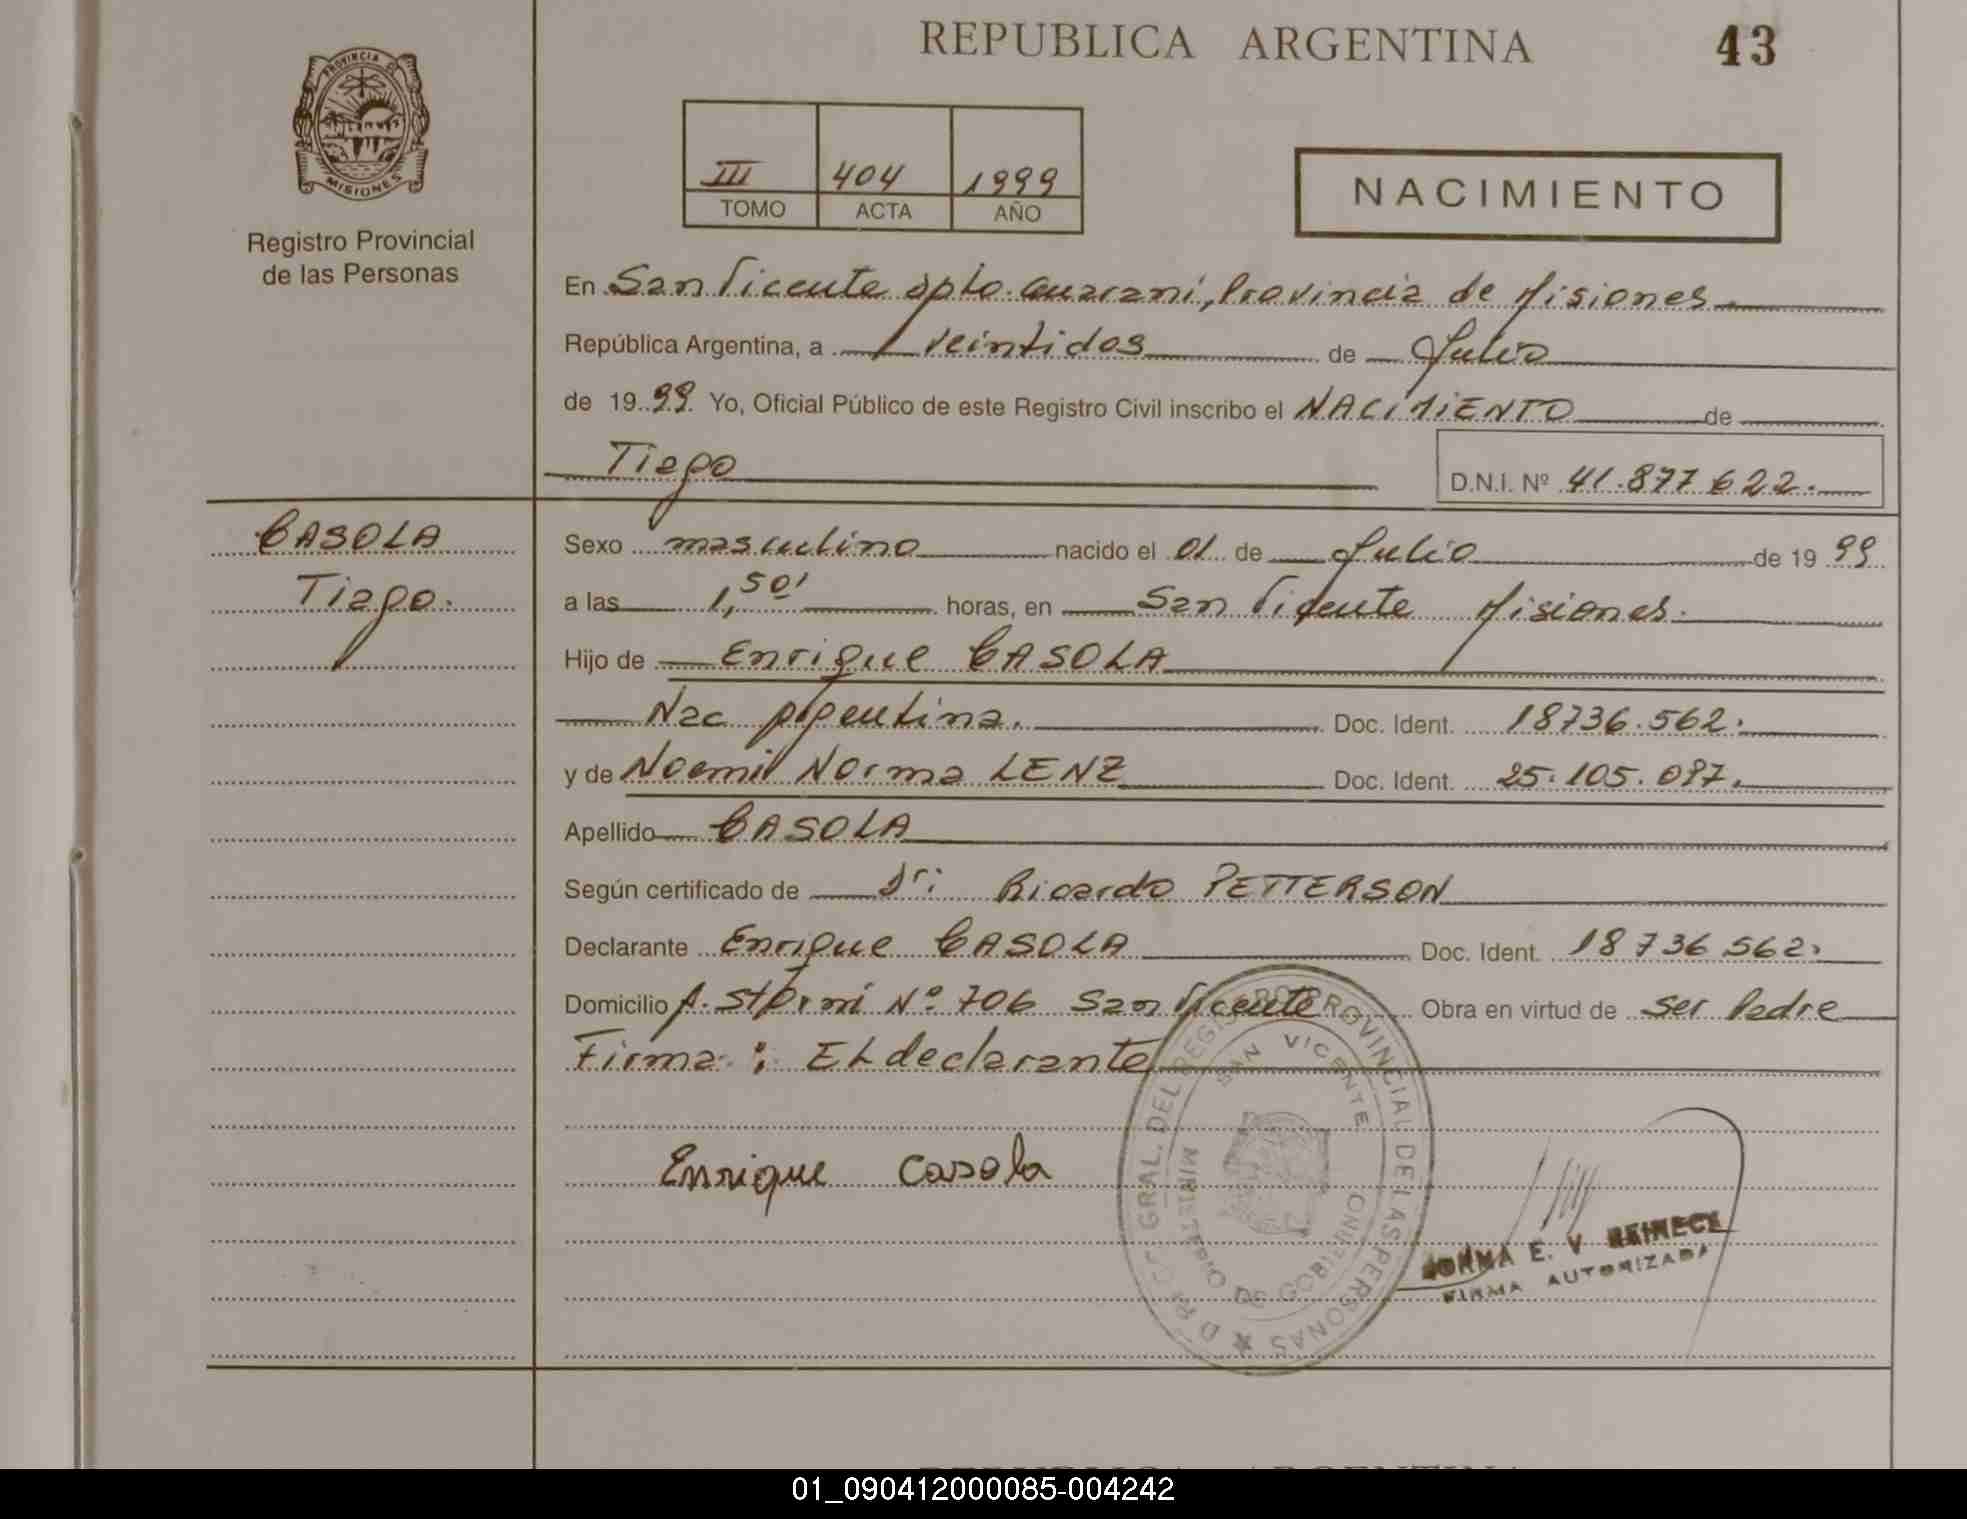 REPUBLICA ARGENTINA
43
PROVINCIA DE
MISIONES
Registro Provincial
de las Personas
III 404 1999
TOMO ACTA AÑO
NACIMIENTO
En San Vicente Dpto. Guaraní, Provincia de Misiones
República Argentina, a veintidos de Julio
de 1999 Yo, Oficial Público de este Registro Civil inscribo el NACIMIENTO de
Tiago
D.N.I. Nº 41.877 622.
CASOLA
Tiago.
Sexo masculino nacido el 01 de Julio de 1999
a las 1,50' horas, en San Vicente Misiones.
Hijo de Enrique CASOLA
Nac Argentina. Doc. Ident. 18736.562.
y de Noemi Norma LENZ Doc. Ident. 25.105.087.
Apellido CASOLA
Según certificado de Dr: Ricardo PETTERSON
Declarante Enrique CASOLA Doc. Ident. 18 736 562.
Domicilio A. Storni Nº 706 San Vicente Obra en virtud de ser Padre
Firma: El declarante
Enrique Casola
GRAL. DEL REGISTRO PROVINCIAL DE LAS PERSONAS
SAN VICENTE
MINISTERIO DE GOBIERNO
NORMA E. V. REINECK
FIRMA AUTORIZADA
REPUBLICA ARGENTINA
01_090412000085-004242